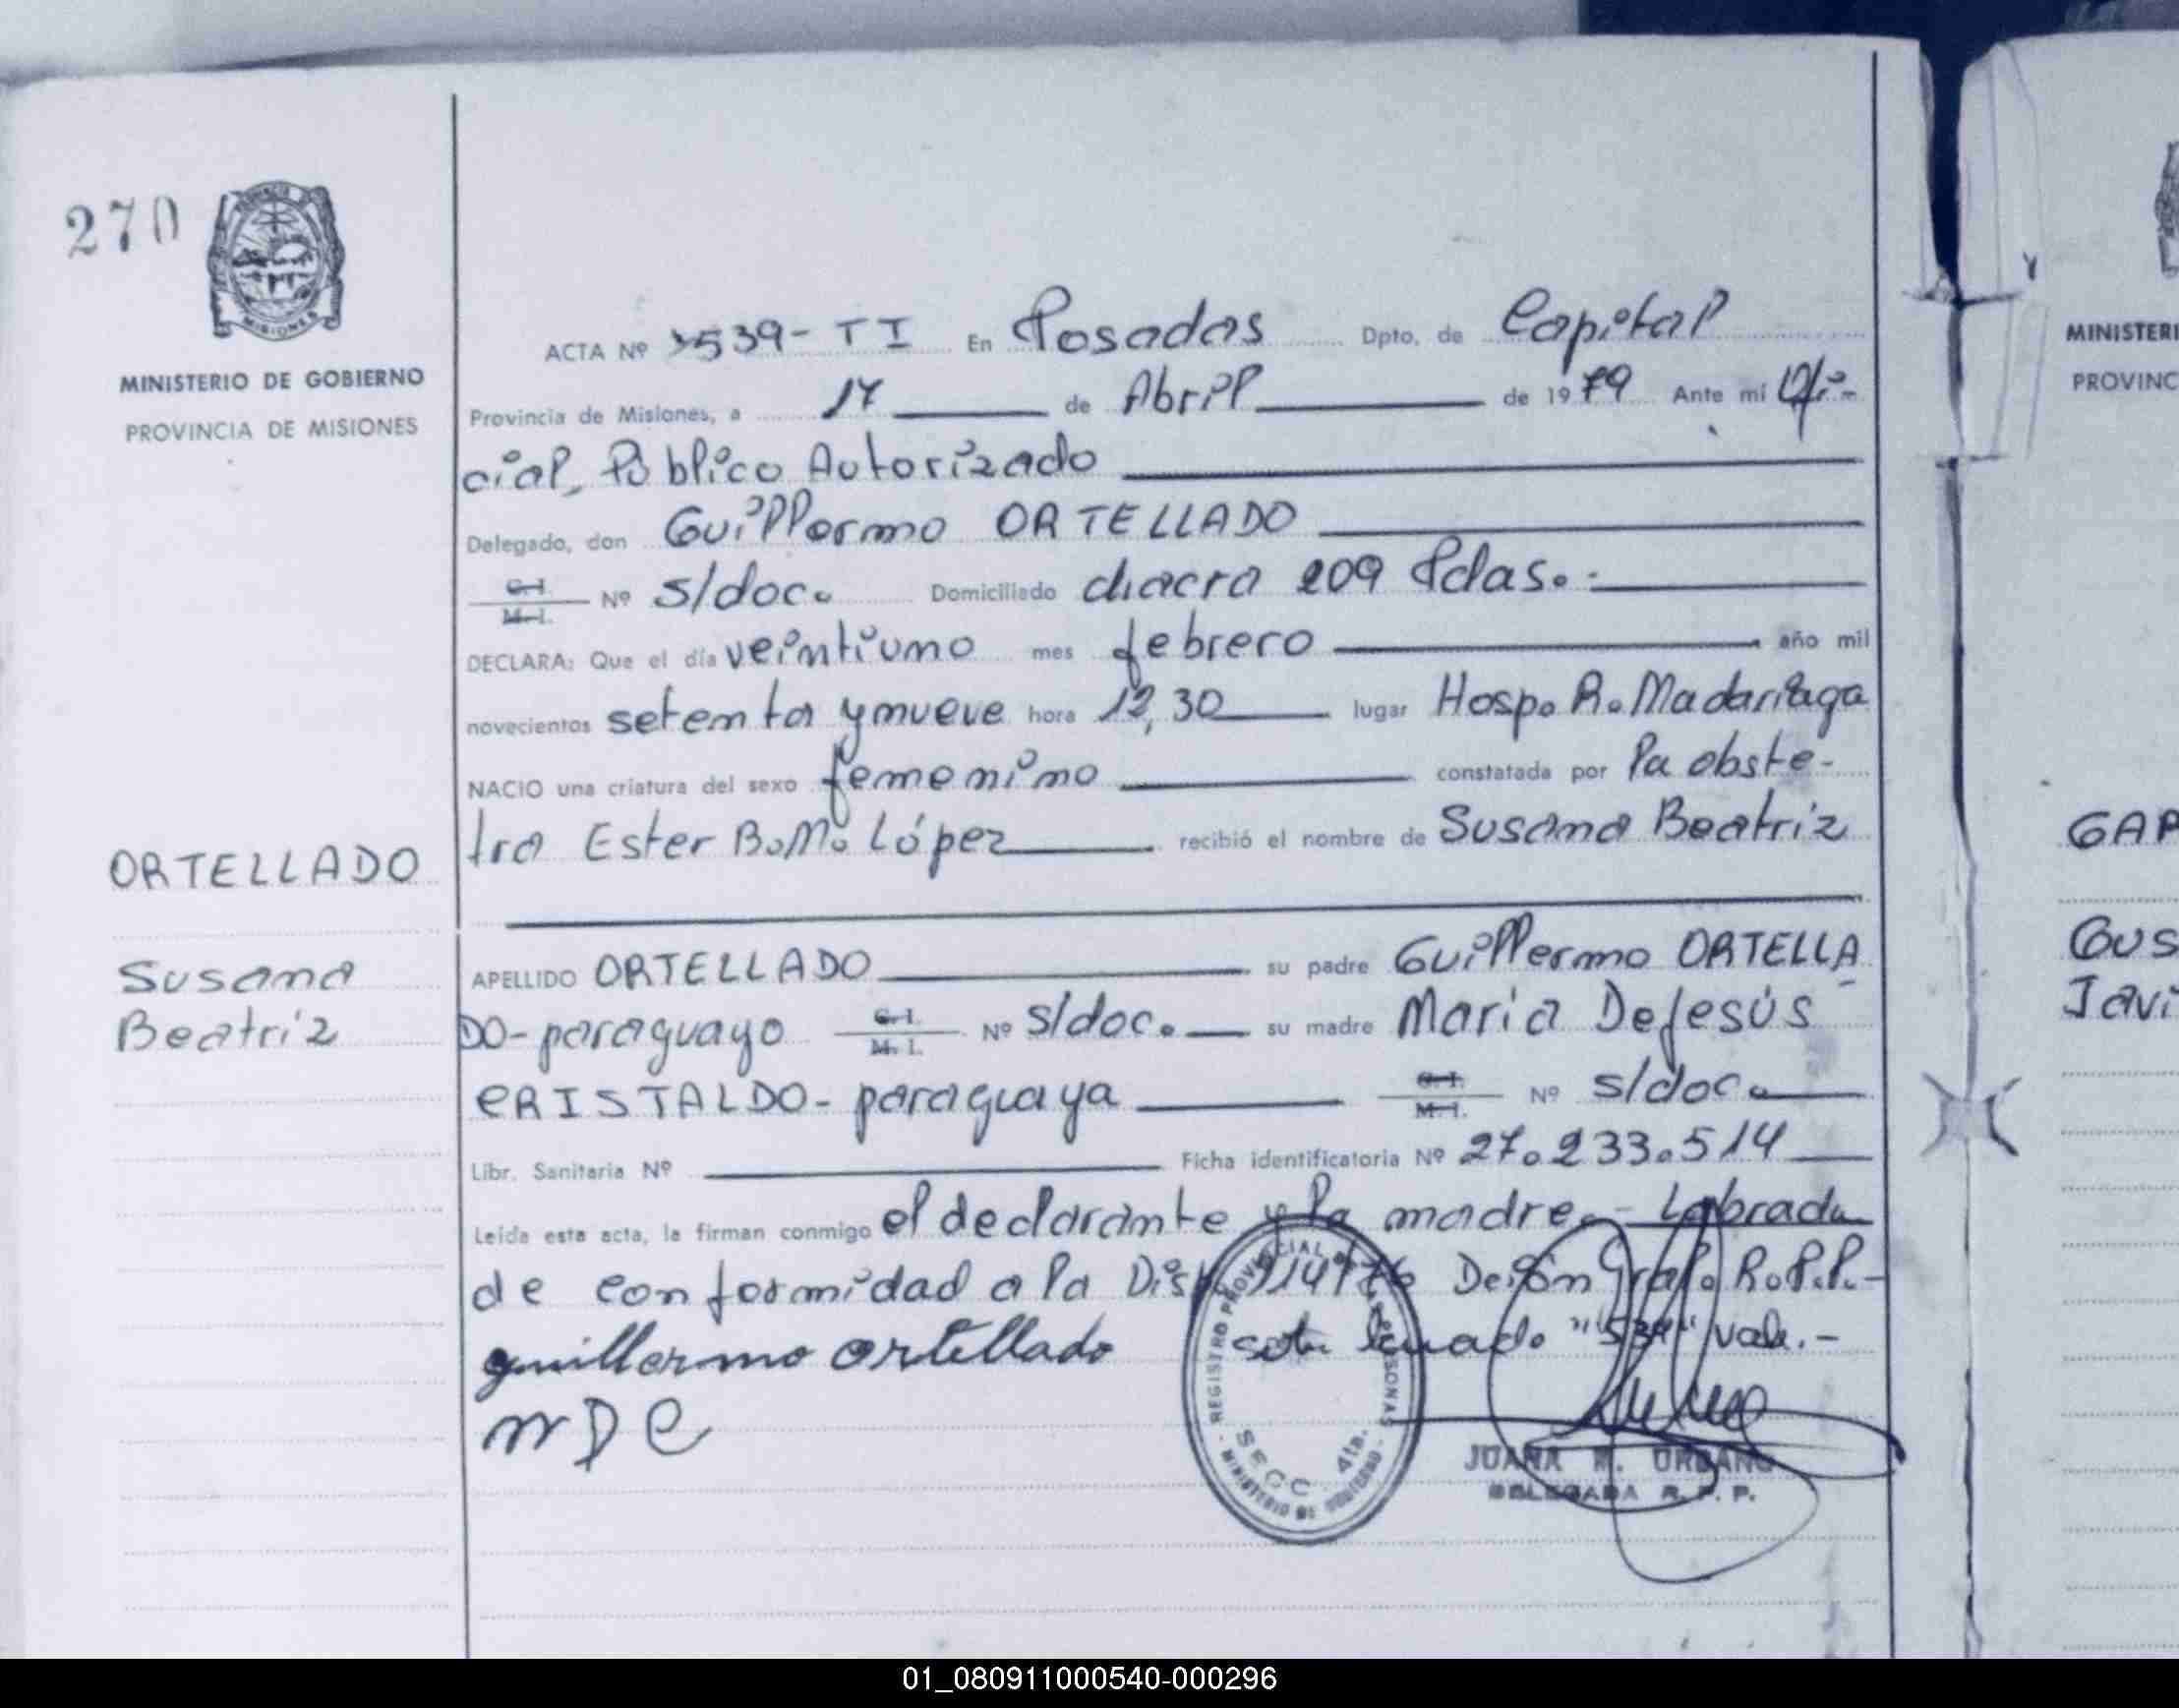 270
MISIONES
MINISTERIO DE GOBIERNO
PROVINCIA DE MISIONES
ORTELLADO
Susana
Beatriz
ACTA Nº 539-TI En Posadas Dpto. de Capital
Provincia de Misiones, a 17 de Abril de 1979 Ante mi Ofi-
cial, Público Autorizado
Delegado, don Guillermo ORTELLADO
C.I. M.I. Nº s/doc. Domiciliado chacra 209 Pdas.-
DECLARA: Que el día veintiuno mes febrero año mil
novecientos setenta y nueve hora 12,30 lugar Hosp. R. Madariaga
NACIO una criatura del sexo femenino constatada por la obste-
tra Ester B.M. López recibió el nombre de Susana Beatriz
APELLIDO ORTELLADO su padre Guillermo ORTELLA
DO-paraguayo C.I. M.I. Nº s/doc. su madre María De Jesús
CRISTALDO-paraguaya C.I. M.I. Nº s/doc.
Libr. Sanitaria Nº Ficha identificatoria Nº 27.233.514
Leída esta acta, la firman conmigo el declarante y la madre.- Labrada
de conformidad a la Disp. Grál. R.P.P.-
guillermo ortellado "539" vale.-
M D C
REGISTRO PROVINCIAL DE LAS PERSONAS
SECC. 4ta.
MINISTERIO DE GOBIERNO
JUANA URBANO
DELEGADA R.P.P.
MINISTERI
PROVINC
GAR
GUS
Javi
01_080911000540-000296